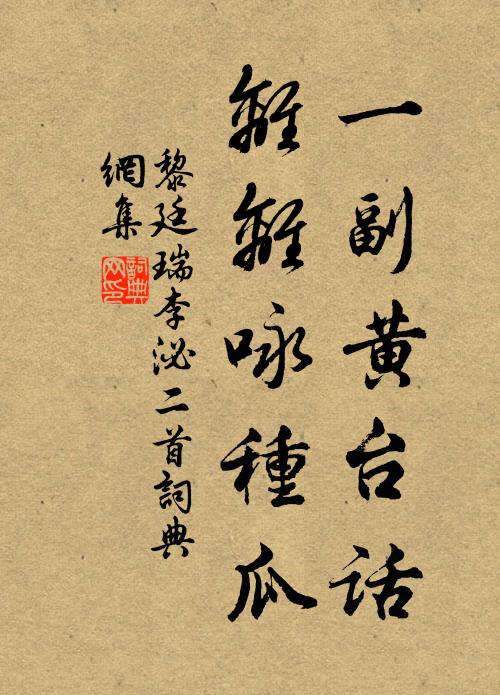 一副黄台話
離離咏種瓜
黎廷瑞李泌二首詞典
網集
詞典
网印